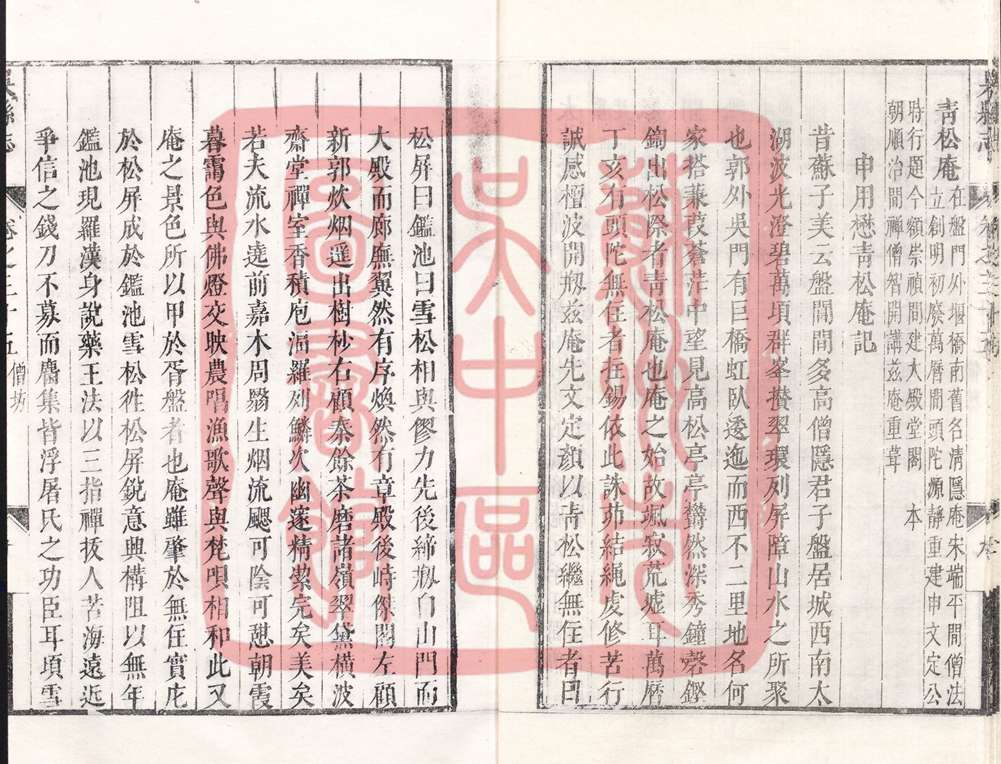 吳縣志
青松庵
在盤門外堰橋南舊名清隱庵朱端平間僧法
立創明初廢萬曆間頭陀源靜重建申文定公
時行題今額崇禎間建大殿堂閣 本
朝順治間禪僧智開講茲庵重葺
申用懋青松庵記
昔蘇子美云盤閶間多高僧隱君子盤居城西南太
湖波光澄碧萬頃群峯攢翠環列屏障山水之所聚
也郭外吳門有巨橋虹臥逶迤而西不二里地名何
家搭蒹葭蒼茫中望見高松亭亭欝然深秀鐘磬鏗
鍧出松際者青松庵也庵之始故颯寂荒墟耳萬曆
丁亥有頭陀無住者拄錫依此誅茆結繩虔修苦行
誠感檀波開剏茲庵先文定顏以青松繼無住者曰
松屏曰鑑池曰雪松相與僇力先後締剏自山門而
大殿而廊廡翼然有序煥然有章殿後峙傑閣左顧
新郭炊烟遥出樹杪右頫泰餘茶磨諸嶺翠黛橫波
齋堂禪室香積庖湢羅列鱗次幽邃精潔完矣美矣
若夫流水遶前嘉木周翳生烟流颸可陰可憇朝霞
暮靄色與佛燈交映農唱漁歌聲與梵唄相和此又
庵之景色所以甲於胥盤者也庵雖肇於無住實庀
於松屏成於鑑池雪松徃松屏銳意興構阻以無年
鑑池現羅漢身說藥王法以三指禪扳人苦海遠近
爭信之錢刀不募而麕集皆浮屠氏之功臣耳項雪
吳縣志
卷之三十五
僧坊
蘇州市
吳中區
圖書館